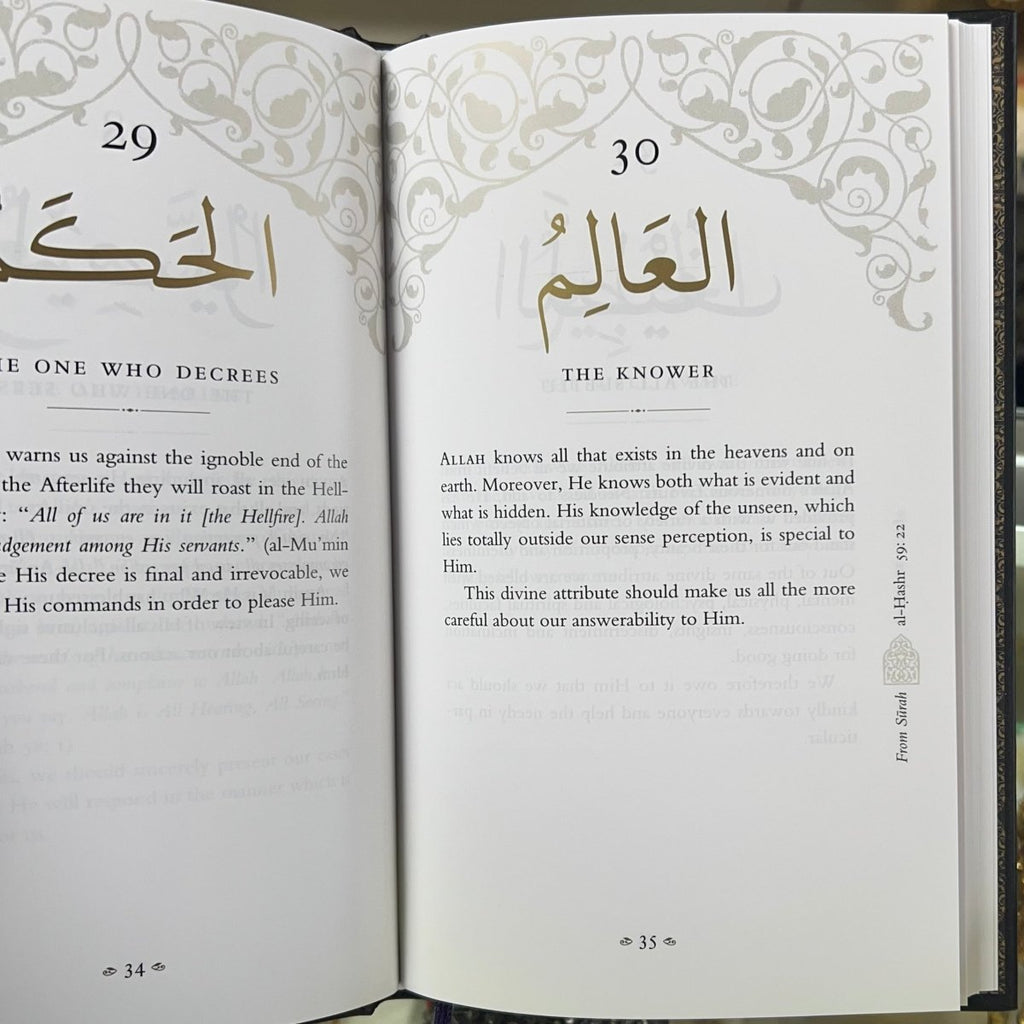 29
HE ONE WHO DECREES
warns us against the ignoble end of the
the Afterlife they will roast in the Hell-
: “All of us are in it [the Hellfire]. Allah
among His servants.” (al-Mu’min
His decree is final and irrevocable, we
His commands in order to please Him.
34
30
العَالِمُ
THE KNOWER
ALLAH knows all that exists in the heavens and on
earth. Moreover, He knows both what is evident and
what is hidden. His knowledge of the unseen, which
lies totally outside our sense perception, is special to
Him.
This divine attribute should make us all the more
careful about our answerability to Him.
From Sūrah al-Ḥashr 59: 22
35